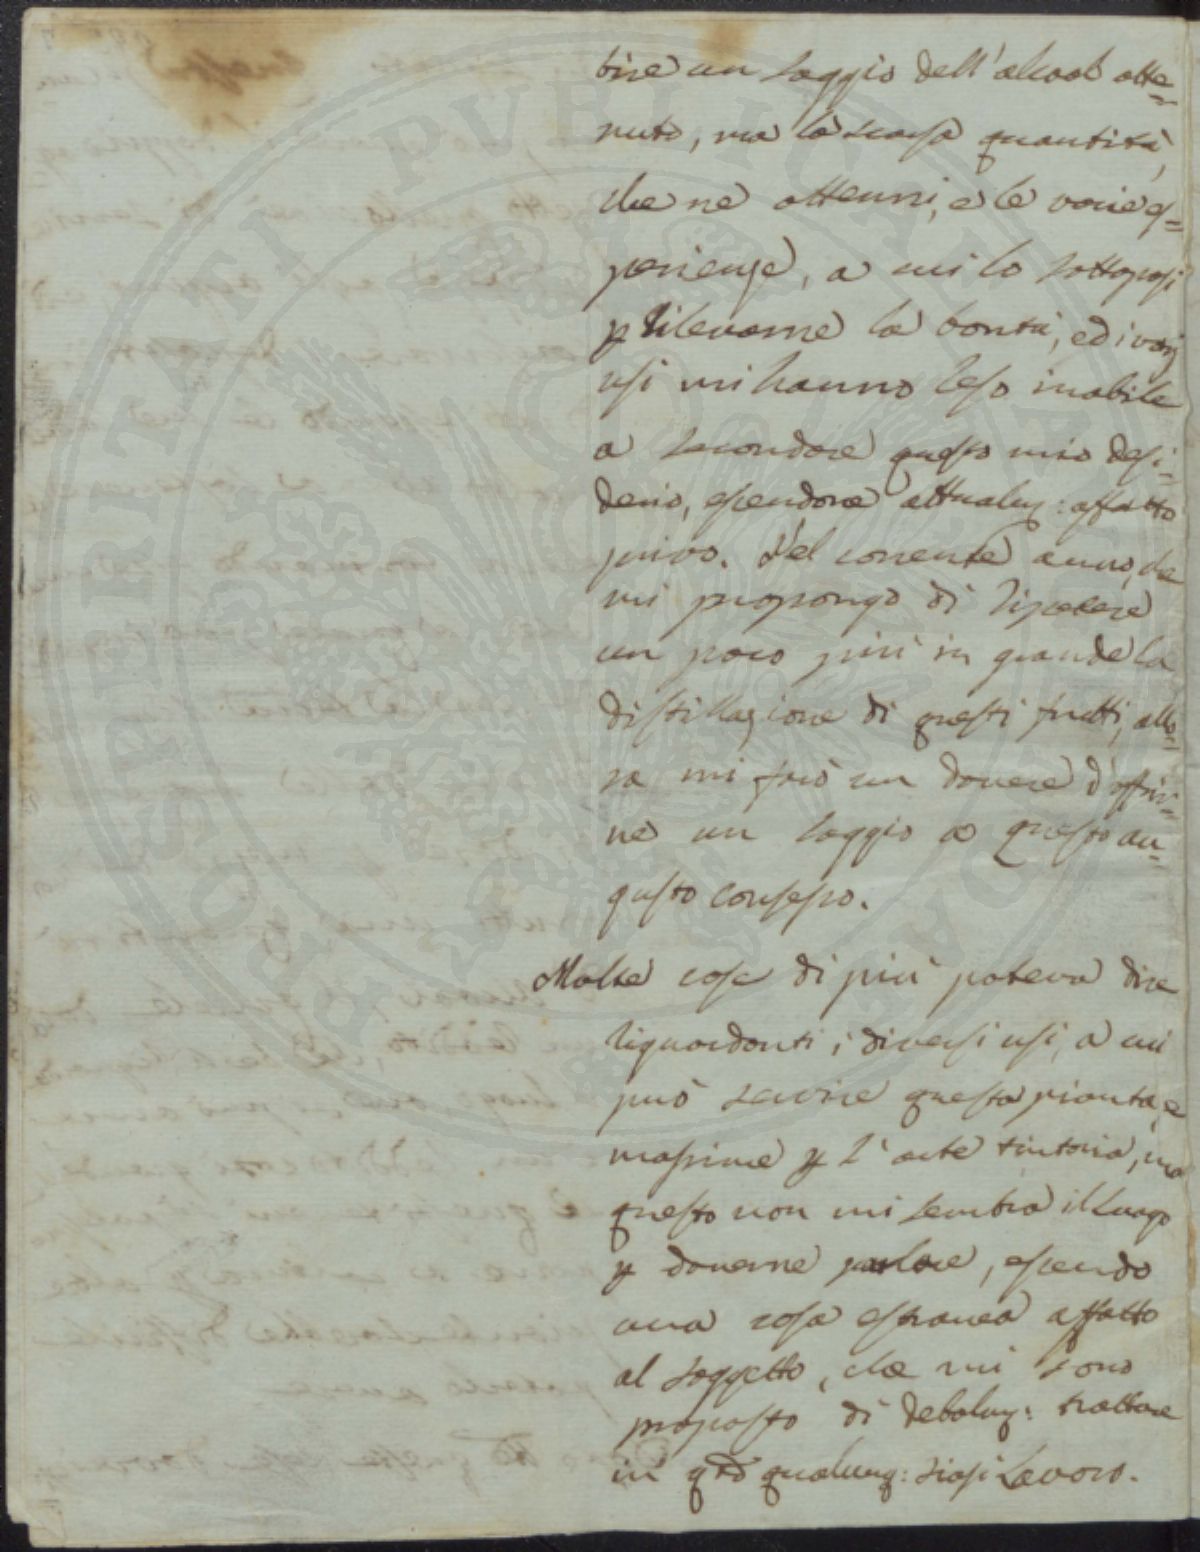 tire un saggio dell'alcool otte=
nuto, ma la scarsa quantità,
che ne ottenni, e le varie es=
perienze, a cui lo sottoposi
p rilevarne la bontà, ed i varj
usi mi hanno reso inabile
a secondare questo mio desi=
derio, essendone attualm: affatto
privo. Nel corrente anno, che
mi propongo di ripetere
un poco più in grande la
distillazione di questi frutti, allo=
ra mi farò un dovere d'offrir=
ne un saggio a questo au=
gusto consesso.
Molte cose di più poteva dire
riguardanti i diversi usi, a cui
può servire questa pianta, e
massime p l'arte tintoria, ma
questo non mi sembra il luogo
p doverne parlare, essendo
una cosa estranea affatto
al soggetto, che mi sono
proposto di debolm: trattare
in qto qualunq: siasi Lavoro.
PROSPERITATI PUBLICAE AUGENDAE